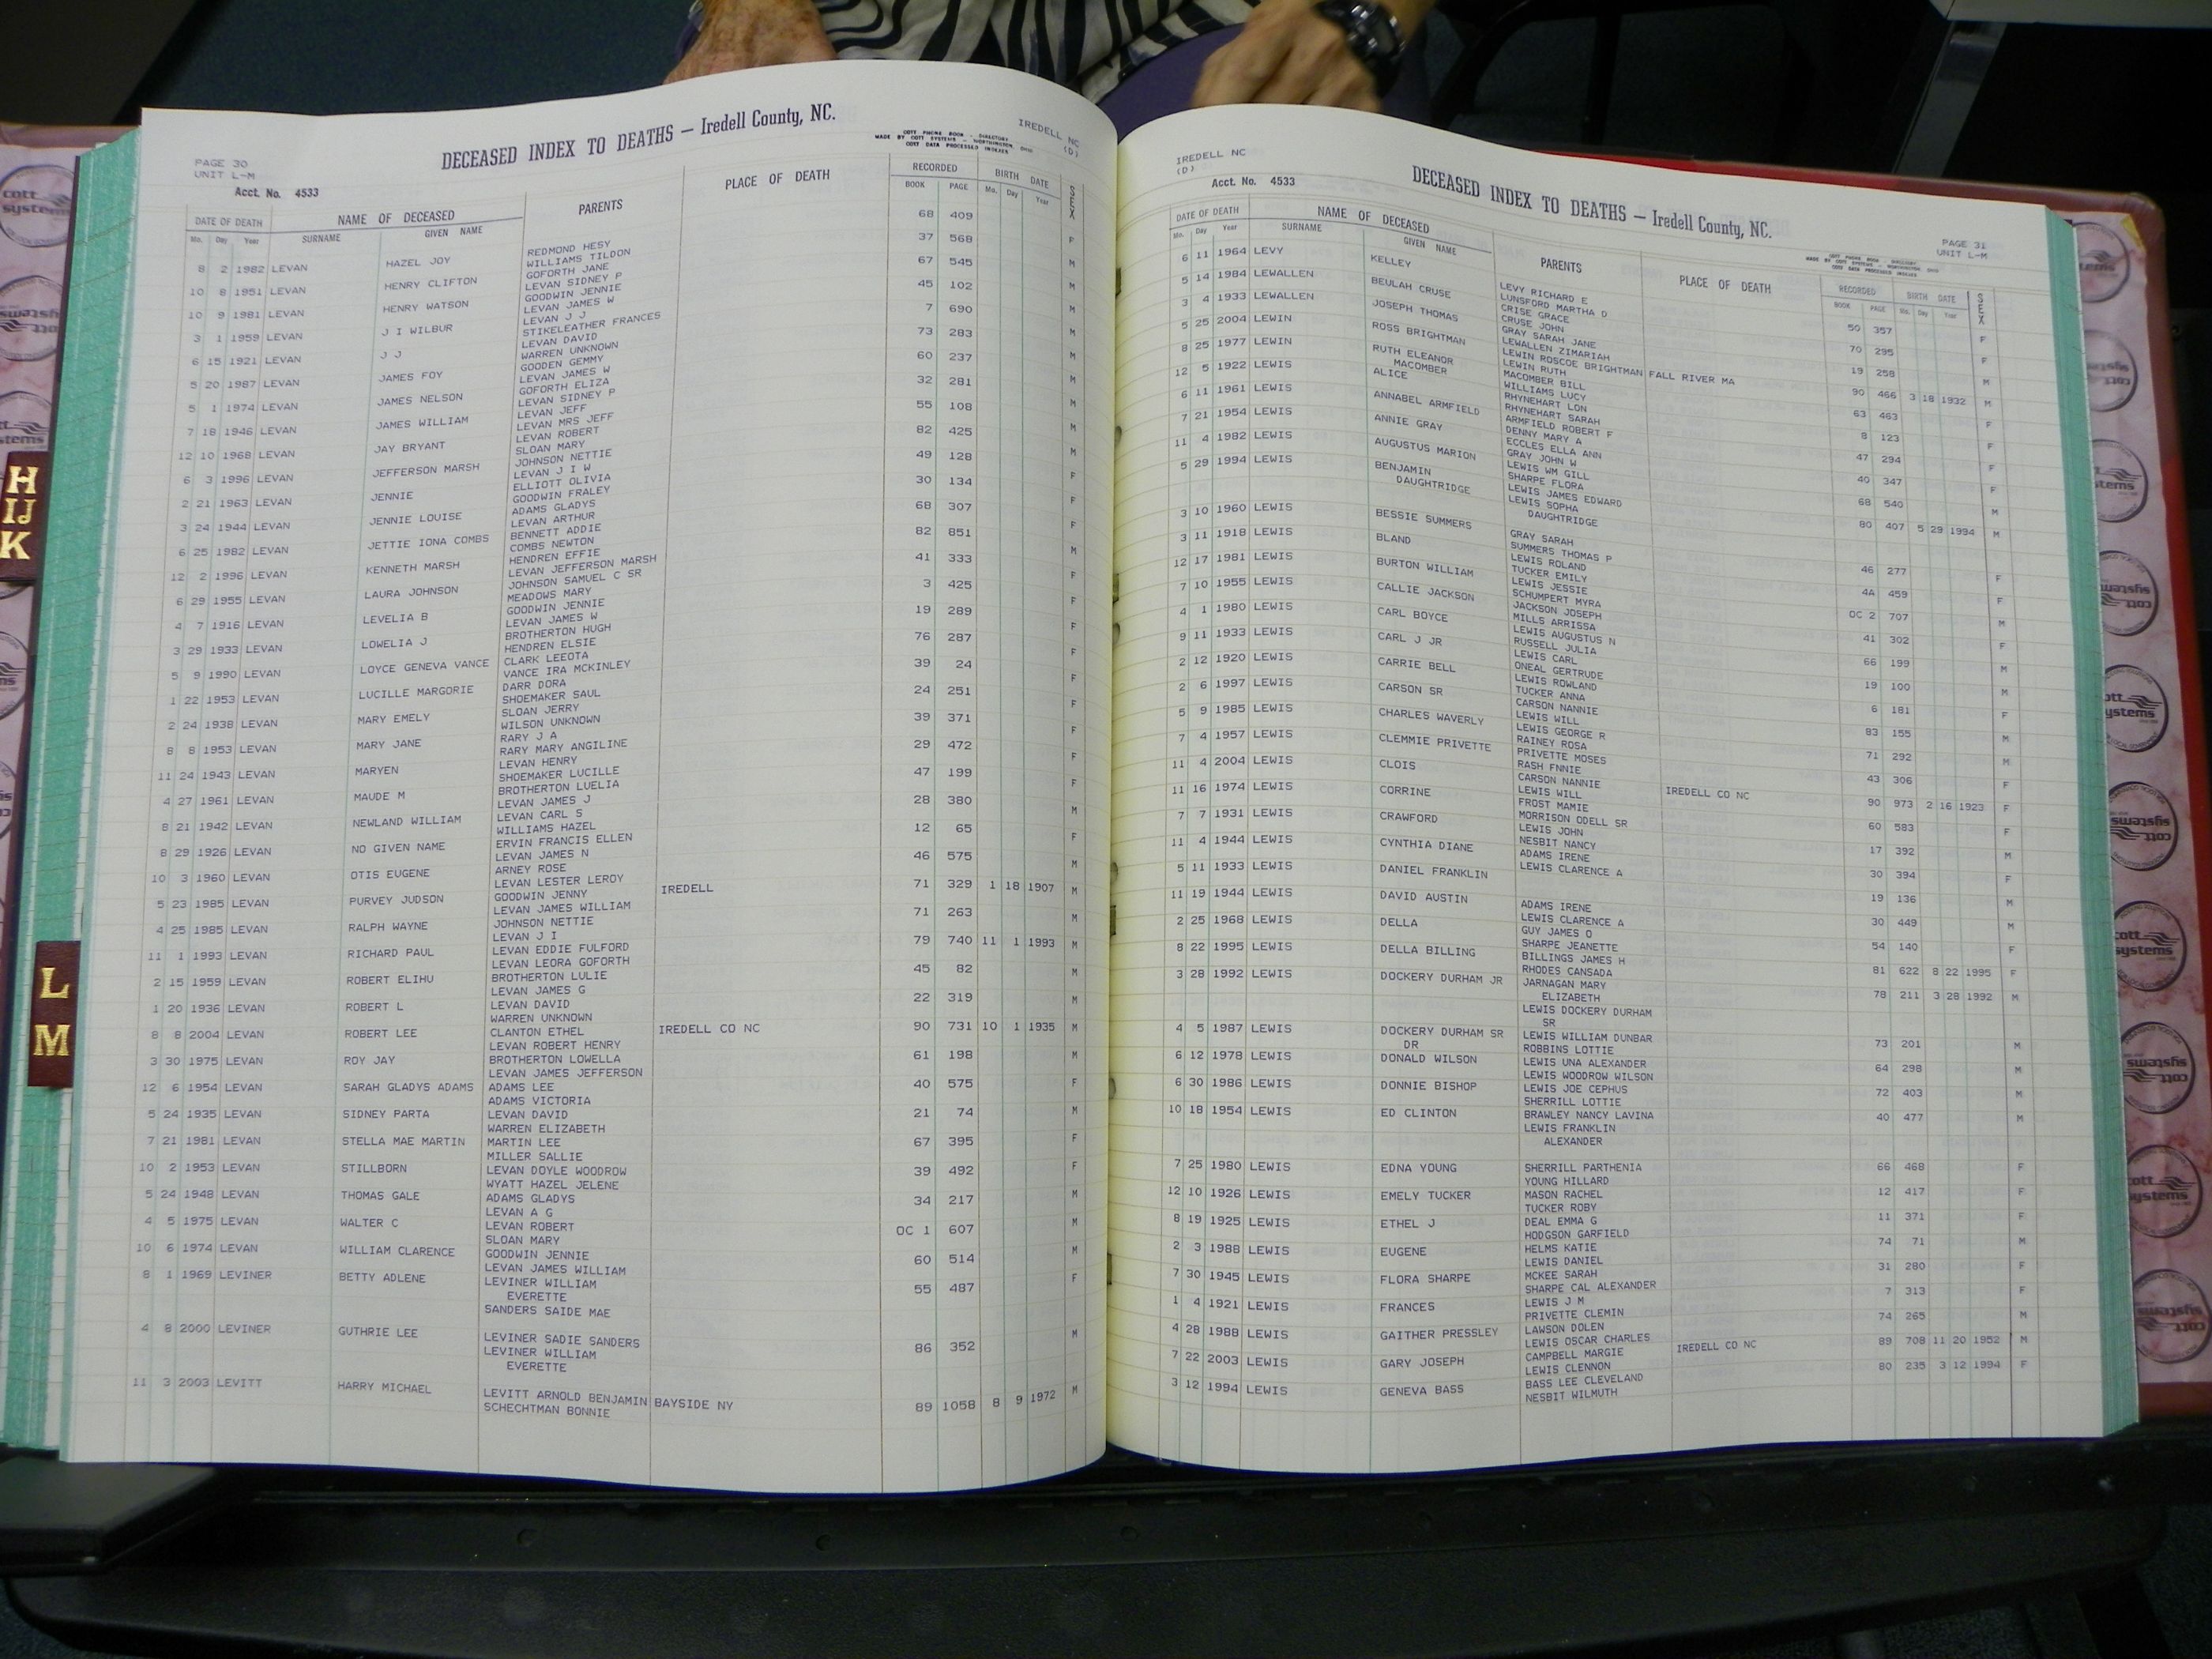 PAGE 30
UNIT L-M
Acct. No. 4533
DECEASED INDEX TO DEATHS — Iredell County, NC.
COTT PHONE BOOK - DIRECTORY
MADE BY COTT SYSTEMS - WORTHINGTON, OHIO
COTT DATA PROCESSED INDEXES
IREDELL NC
(D)
DATE OF DEATH NAME OF DECEASED PARENTS PLACE OF DEATH RECORDED BIRTH DATE SEX
Mo. Day Year SURNAME GIVEN NAME BOOK PAGE Mo. Day Year
8 2 1982 LEVAN HAZEL JOY REDMOND HESY 68 409 F
WILLIAMS TILDON
10 8 1951 LEVAN HENRY CLIFTON GOFORTH JANE 37 568 M
LEVAN SIDNEY P
10 9 1981 LEVAN HENRY WATSON GOODWIN JENNIE 67 545 M
LEVAN JAMES W
3 1 1959 LEVAN J I WILBUR LEVAN J J 45 102 M
STIKELEATHER FRANCES
6 15 1921 LEVAN J J LEVAN DAVID 7 690 M
WARREN UNKNOWN
5 20 1987 LEVAN JAMES FOY GOODEN GEMMY 73 283 M
LEVAN JAMES W
5 1 1974 LEVAN JAMES NELSON GOFORTH ELIZA 60 237 M
LEVAN SIDNEY P
7 18 1946 LEVAN JAMES WILLIAM LEVAN JEFF 32 281 M
LEVAN MRS JEFF
12 10 1968 LEVAN JAY BRYANT LEVAN ROBERT 55 108 M
SLOAN MARY
6 3 1996 LEVAN JEFFERSON MARSH JOHNSON NETTIE 82 425 M
LEVAN J I W
2 21 1963 LEVAN JENNIE ELLIOTT OLIVIA 49 128 F
GOODWIN FRALEY
3 24 1944 LEVAN JENNIE LOUISE ADAMS GLADYS 30 134 F
LEVAN ARTHUR
6 25 1982 LEVAN JETTIE IONA COMBS BENNETT ADDIE 68 307 F
COMBS NEWTON
12 2 1996 LEVAN KENNETH MARSH HENDREN EFFIE 82 851 M
LEVAN JEFFERSON MARSH
6 29 1955 LEVAN LAURA JOHNSON JOHNSON SAMUEL C SR 41 333 F
MEADOWS MARY
4 7 1916 LEVAN LEVELIA B GOODWIN JENNIE 3 425 F
LEVAN JAMES W
3 29 1933 LEVAN LOWELIA J BROTHERTON HUGH 19 289 F
HENDREN ELSIE
5 9 1990 LEVAN LOYCE GENEVA VANCE CLARK LEEOTA 76 287 F
VANCE IRA MCKINLEY
1 22 1953 LEVAN LUCILLE MARGORIE DARR DORA 39 24 F
SHOEMAKER SAUL
2 24 1938 LEVAN MARY EMELY SLOAN JERRY 24 251 F
WILSON UNKNOWN
8 8 1953 LEVAN MARY JANE RARY J A 39 371 F
RARY MARY ANGILINE
11 24 1943 LEVAN MARYEN LEVAN HENRY 29 472 F
SHOEMAKER LUCILLE
4 27 1961 LEVAN MAUDE M BROTHERTON LUELIA 47 199 F
LEVAN JAMES J
8 21 1942 LEVAN NEWLAND WILLIAM LEVAN CARL S 28 380 M
WILLIAMS HAZEL
8 29 1926 LEVAN NO GIVEN NAME ERVIN FRANCIS ELLEN 12 65 F
LEVAN JAMES N
10 3 1960 LEVAN OTIS EUGENE ARNEY ROSE 46 575 M
LEVAN LESTER LEROY
5 23 1985 LEVAN PURVEY JUDSON GOODWIN JENNY IREDELL 71 329 1 18 1907 M
LEVAN JAMES WILLIAM
4 25 1985 LEVAN RALPH WAYNE JOHNSON NETTIE 71 263 M
LEVAN J I
11 1 1993 LEVAN RICHARD PAUL LEVAN EDDIE FULFORD 79 740 11 1 1993 M
LEVAN LEORA GOFORTH
2 15 1959 LEVAN ROBERT ELIHU BROTHERTON LULIE 45 82 M
LEVAN JAMES G
1 20 1936 LEVAN ROBERT L LEVAN DAVID 22 319 M
WARREN UNKNOWN
8 8 2004 LEVAN ROBERT LEE CLANTON ETHEL IREDELL CO NC 90 731 10 1 1935 M
LEVAN ROBERT HENRY
3 30 1975 LEVAN ROY JAY BROTHERTON LOWELLA 61 198 M
LEVAN JAMES JEFFERSON
12 6 1954 LEVAN SARAH GLADYS ADAMS ADAMS LEE 40 575 F
ADAMS VICTORIA
5 24 1935 LEVAN SIDNEY PARTA LEVAN DAVID 21 74 M
WARREN ELIZABETH
7 21 1981 LEVAN STELLA MAE MARTIN MARTIN LEE 67 395 F
MILLER SALLIE
10 2 1953 LEVAN STILLBORN LEVAN DOYLE WOODROW 39 492 F
WYATT HAZEL JELENE
5 24 1948 LEVAN THOMAS GALE ADAMS GLADYS 34 217 M
LEVAN A G
4 5 1975 LEVAN WALTER C LEVAN ROBERT OC 1 607 M
SLOAN MARY
10 6 1974 LEVAN WILLIAM CLARENCE GOODWIN JENNIE 60 514 M
LEVAN JAMES WILLIAM
8 1 1969 LEVINER BETTY ADLENE LEVINER WILLIAM 55 487 F
EVERETTE
SANDERS SAIDE MAE
4 8 2000 LEVINER GUTHRIE LEE LEVINER SADIE SANDERS 86 352 M
LEVINER WILLIAM
EVERETTE
11 3 2003 LEVITT HARRY MICHAEL LEVITT ARNOLD BENJAMIN BAYSIDE NY 89 1058 8 9 1972 M
SCHECHTMAN BONNIE
IREDELL NC
(D)
Acct. No. 4533
DECEASED INDEX TO DEATHS — Iredell County, NC.
PAGE 31
UNIT L-M
DATE OF DEATH NAME OF DECEASED PARENTS PLACE OF DEATH RECORDED BIRTH DATE SEX
Mo. Day Year SURNAME GIVEN NAME BOOK PAGE Mo. Day Year
6 11 1964 LEVY KELLEY LEVY RICHARD E 50 357 F
LUNSFORD MARTHA D
5 14 1984 LEWALLEN BEULAH CRUSE CRISE GRACE 70 295 F
CRUSE JOHN
3 4 1933 LEWALLEN JOSEPH THOMAS GRAY SARAH JANE 19 258 M
LEWALLEN ZIMARIAH
5 25 2004 LEWIN ROSS BRIGHTMAN LEWIN ROSCOE BRIGHTMAN FALL RIVER MA 90 466 3 18 1932 M
LEWIN RUTH
8 25 1977 LEWIN RUTH ELEANOR MACOMBER BILL 63 463 F
MACOMBER WILLIAMS LUCY
12 5 1922 LEWIS ALICE RHYNEHART LON 8 123 F
RHYNEHART SARAH
6 11 1961 LEWIS ANNABEL ARMFIELD ARMFIELD ROBERT F 47 294 F
DENNY MARY A
7 21 1954 LEWIS ANNIE GRAY ECCLES ELLA ANN 40 347 F
GRAY JOHN W
11 4 1982 LEWIS AUGUSTUS MARION LEWIS WM GILL 68 540 M
SHARPE FLORA
5 29 1994 LEWIS BENJAMIN LEWIS JAMES EDWARD 80 407 5 29 1994 M
DAUGHTRIDGE LEWIS SOPHA
DAUGHTRIDGE
3 10 1960 LEWIS BESSIE SUMMERS GRAY SARAH 46 277 F
SUMMERS THOMAS P
3 11 1918 LEWIS BLAND LEWIS ROLAND 4A 459 F
TUCKER EMILY
12 17 1981 LEWIS BURTON WILLIAM LEWIS JESSIE OC 2 707 M
SCHUMPERT MYRA
7 10 1955 LEWIS CALLIE JACKSON JACKSON JOSEPH 41 302 F
MILLS ARRISSA
4 1 1980 LEWIS CARL BOYCE LEWIS AUGUSTUS N 66 199 M
RUSSELL JULIA
9 11 1933 LEWIS CARL J JR LEWIS CARL 19 100 M
ONEAL GERTRUDE
2 12 1920 LEWIS CARRIE BELL LEWIS ROWLAND 6 181 F
TUCKER ANNA
2 6 1997 LEWIS CARSON SR CARSON NANNIE 83 155 M
LEWIS WILL
5 9 1985 LEWIS CHARLES WAVERLY LEWIS GEORGE R 71 292 M
RAINEY ROSA
7 4 1957 LEWIS CLEMMIE PRIVETTE PRIVETTE MOSES 43 306 F
RASH FNNIE
11 4 2004 LEWIS CLOIS CARSON NANNIE IREDELL CO NC 90 973 2 16 1923 F
LEWIS WILL
11 16 1974 LEWIS CORRINE FROST MAMIE 60 583 F
MORRISON ODELL SR
7 7 1931 LEWIS CRAWFORD LEWIS JOHN 17 392 M
NESBIT NANCY
11 4 1944 LEWIS CYNTHIA DIANE ADAMS IRENE 30 394 F
LEWIS CLARENCE A
5 11 1933 LEWIS DANIEL FRANKLIN 19 136 M
11 19 1944 LEWIS DAVID AUSTIN ADAMS IRENE 30 449 M
LEWIS CLARENCE A
2 25 1968 LEWIS DELLA GUY JAMES O 54 140 F
SHARPE JEANETTE
8 22 1995 LEWIS DELLA BILLING BILLINGS JAMES H 81 622 8 22 1995 F
RHODES CANSADA
3 28 1992 LEWIS DOCKERY DURHAM JR JARNAGAN MARY 78 211 3 28 1992 M
ELIZABETH
LEWIS DOCKERY DURHAM
SR
4 5 1987 LEWIS DOCKERY DURHAM SR LEWIS WILLIAM DUNBAR 73 201 M
DR ROBBINS LOTTIE
6 12 1978 LEWIS DONALD WILSON LEWIS UNA ALEXANDER 64 298 M
LEWIS WOODROW WILSON
6 30 1986 LEWIS DONNIE BISHOP LEWIS JOE CEPHUS 72 403 M
SHERRILL LOTTIE
10 18 1954 LEWIS ED CLINTON BRAWLEY NANCY LAVINA 40 477 M
LEWIS FRANKLIN
ALEXANDER
7 25 1980 LEWIS EDNA YOUNG SHERRILL PARTHENIA 66 468 F
YOUNG HILLARD
12 10 1926 LEWIS EMELY TUCKER MASON RACHEL 12 417 F
TUCKER ROBY
8 19 1925 LEWIS ETHEL J DEAL EMMA G 11 371 F
HODGSON GARFIELD
2 3 1988 LEWIS EUGENE HELMS KATIE 74 71 M
LEWIS DANIEL
7 30 1945 LEWIS FLORA SHARPE MCKEE SARAH 31 280 F
SHARPE CAL ALEXANDER
1 4 1921 LEWIS FRANCES LEWIS J M 7 313 F
PRIVETTE CLEMIN
4 28 1988 LEWIS GAITHER PRESSLEY LAWSON DOLEN 74 265 M
LEWIS OSCAR CHARLES
7 22 2003 LEWIS GARY JOSEPH CAMPBELL MARGIE IREDELL CO NC 89 708 11 20 1952 M
LEWIS CLENNON
3 12 1994 LEWIS GENEVA BASS BASS LEE CLEVELAND 80 235 3 12 1994 F
NESBIT WILMUTH
H
IJ
K
L
M
cott
systems